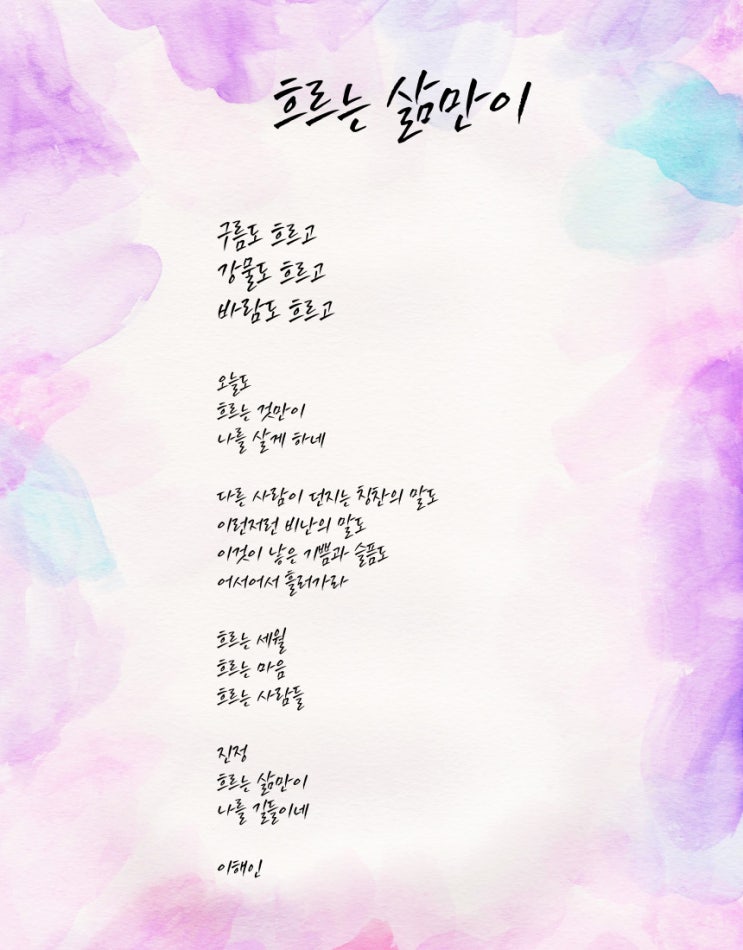 흐르는 삶만이
구름도 흐르고
강물도 흐르고
바람도 흐르고
오늘도
흐르는 것만이
나를 살게 하네
다른 사람이 던지는 칭찬의 말도
이런저런 비난의 말도
이것이 낳은 기쁨과 슬픔도
어서어서 흘러가라
흐르는 세월
흐르는 마음
흐르는 사람들
진정
흐르는 삶만이
나를 길들이네
이해인